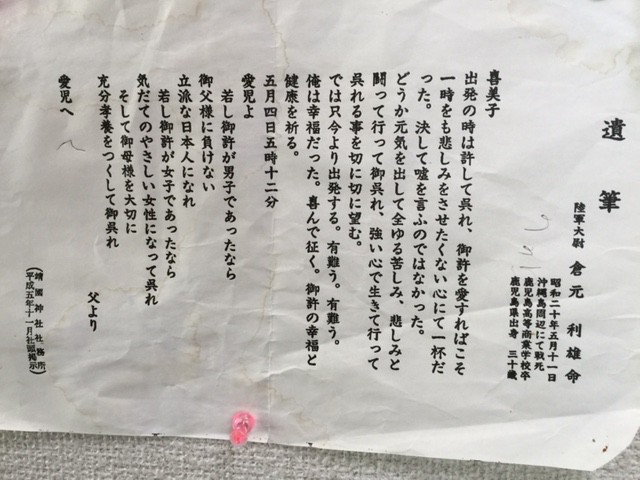 遺筆
陸軍大尉 倉元 利雄命
昭和二十年五月十一日
沖縄島周辺にて戦死
鹿児島高等商業学校卒
鹿児島県出身 三十歳
喜美子
出発の時は許して呉れ、御許を愛すればこそ
一時をも悲しみをさせたくない心にて一杯だ
った。決して嘘を言ふのではなかった。
どうか元気を出して全ゆる苦しみ、悲しみと
闘って行って御呉れ、強い心で生きて行って
呉れる事を切に切に望む。
では只今より出発する。有難う。有難う。
俺は幸福だった。喜んで征く。御許の幸福と
健康を祈る。
五月四日五時十二分
愛児よ
若し御許が男子であったなら
御父様に負けない
立派な日本人になれ
若し御許が女子であったなら
気だてのやさしい女性になって呉れ
そして御母様を大切に
充分孝養をつくして御呉れ
父より
愛児へ
(靖國神社社務所
平成五年十一月社頭掲示)